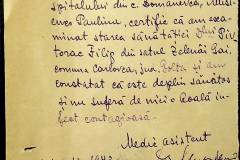 spitalului din c. Domanevca,
Paulina, certific că am exa-
minat starea sănătății lui Piv
torac Filip din satul Zelenâi Gai,
comuna Cantovca, jud. Golta și am
constatat că este deplin sănătos
și nu suferă de nici o boală in-
fect contagioasă.
Medic asistent